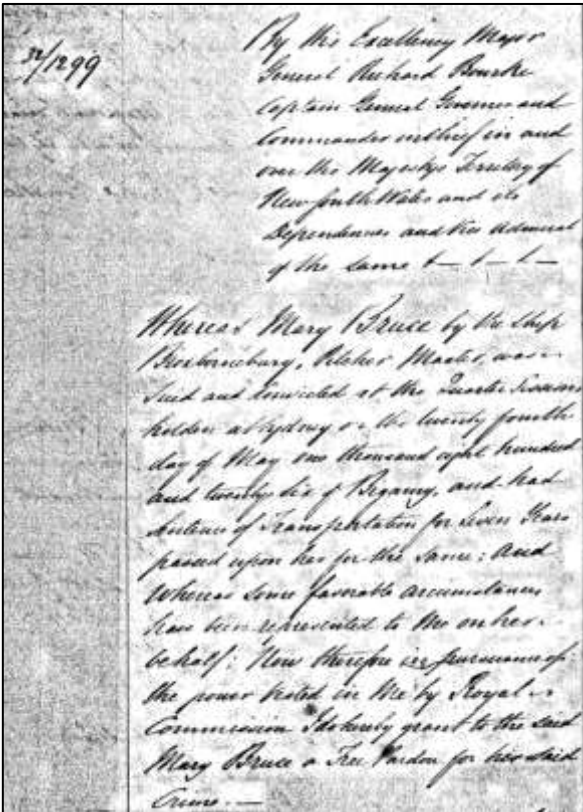 32/1299
By His Excellency Major
General Richard Bourke
Captain General Governor and
Commander in Chief in and
over His Majestys Territory of
New South Wales and its
Dependencies and Vice Admiral
of the same &— &— &—
Whereas Mary Bruce by the Ship
Broxbornebury, Pitcher Master, was
tried and convicted at the Quarter Sessions
holden at Sydney on the twenty fourth
day of May one thousand eight hundred
and twenty six of Bigamy, and had
sentence of Transportation for Seven Years
passed upon her for the same: And
Whereas some favorable circumstances
have been represented to Me on her
behalf: Now therefore in pursuance of
the power vested in Me by Royal
Commission I do hereby grant to the said
Mary Bruce a Free Pardon for her said
Crime.—